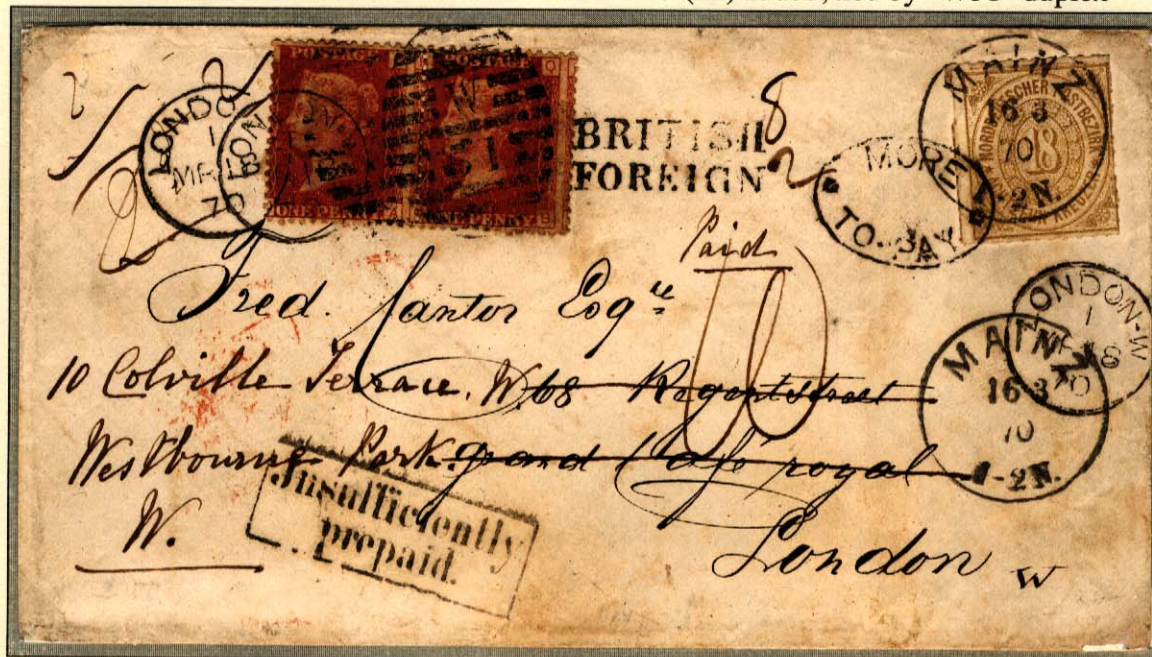 tied by "W51" duplex
POSTAGE
POSTAGE
ONE PENNY
ONE PENNY
W
51
LONDON
1
MR 18
70
BRITISH
FOREIGN
8
2
MORE
TO-PAY
MAINZ
16 3
70
1-2N.
NORDDEUTSCHER POSTBEZIRK
18
KREUZER
Paid
Fred. Cantor Esqre
10 Colville Terrace. W. 68 Regentstreet
Westbourne Park. grand Café royal
W.
London W
Insufficiently
prepaid.
LONDON-W
1
MR 18
70
MAINZ
16 3
70
1-2N.